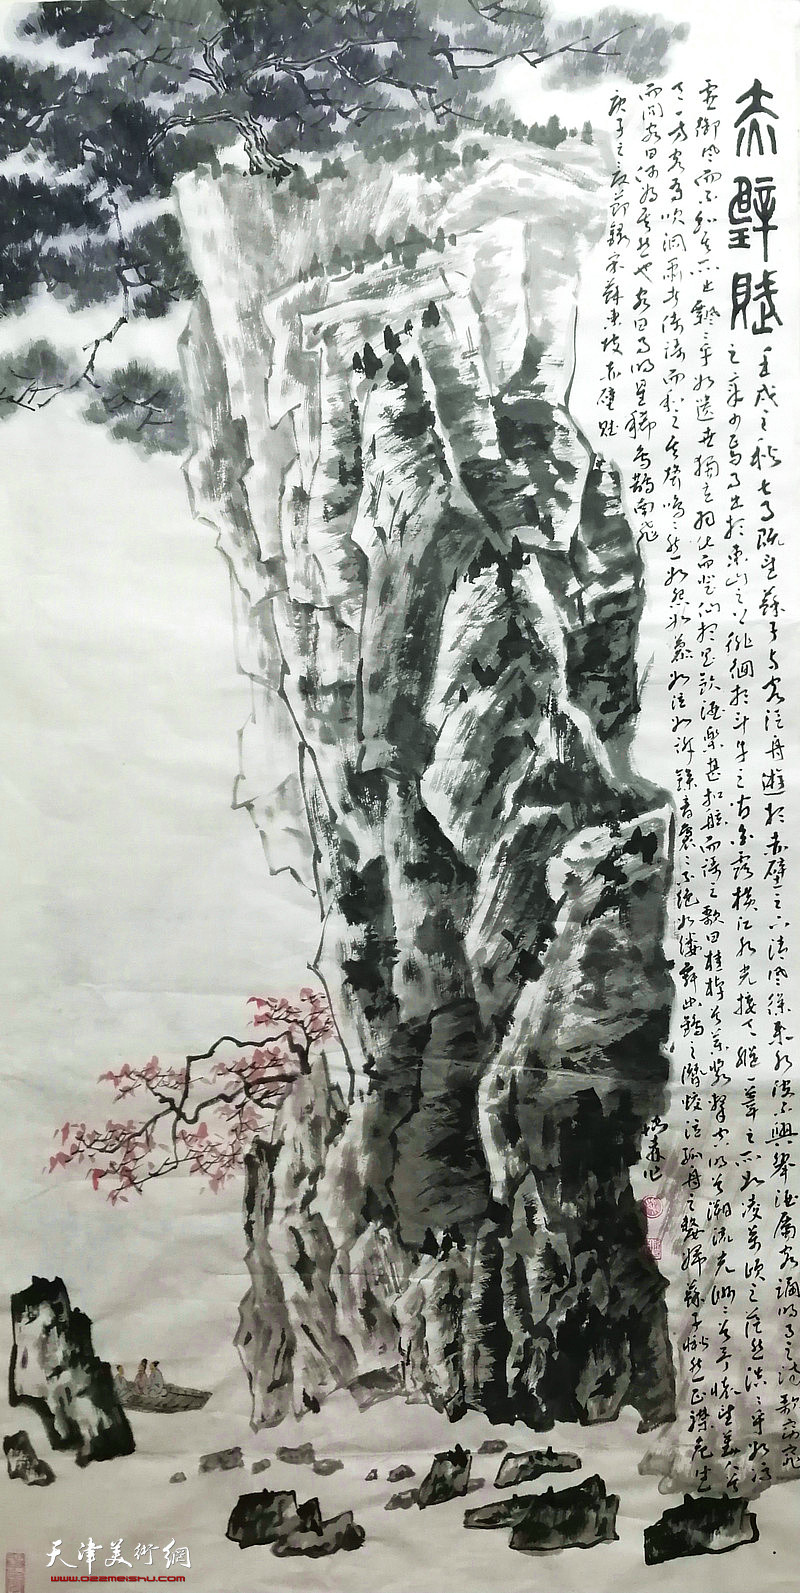 赤壁賦
壬戌之秋七月既望蘇子與客泛舟遊於赤壁之下清風徐來水波不興舉酒屬客誦明月之詩歌窈窕
之章少焉月出於東山之上徘徊於斗牛之間白露橫江水光接天縱一葦之所如凌萬頃之茫然浩〻乎如馮
虛御風而不知其所止飄〻乎如遺世獨立羽化而登仙於是飲酒樂甚扣舷而歌之歌曰桂棹兮蘭槳擊空明兮溯流光渺〻兮予懷望美人兮
天一方客有吹洞簫者倚歌而和之其聲嗚〻然如怨如慕如泣如訴餘音裊〻不絕如縷舞幽壑之潛蛟泣孤舟之嫠婦蘇子愀然正襟危坐
而問客曰何為其然也客曰月明星稀烏鵲南飛
庚子之夏節錄宋蘇東坡赤壁賦
森作
天津美術網
www.022meishu.com